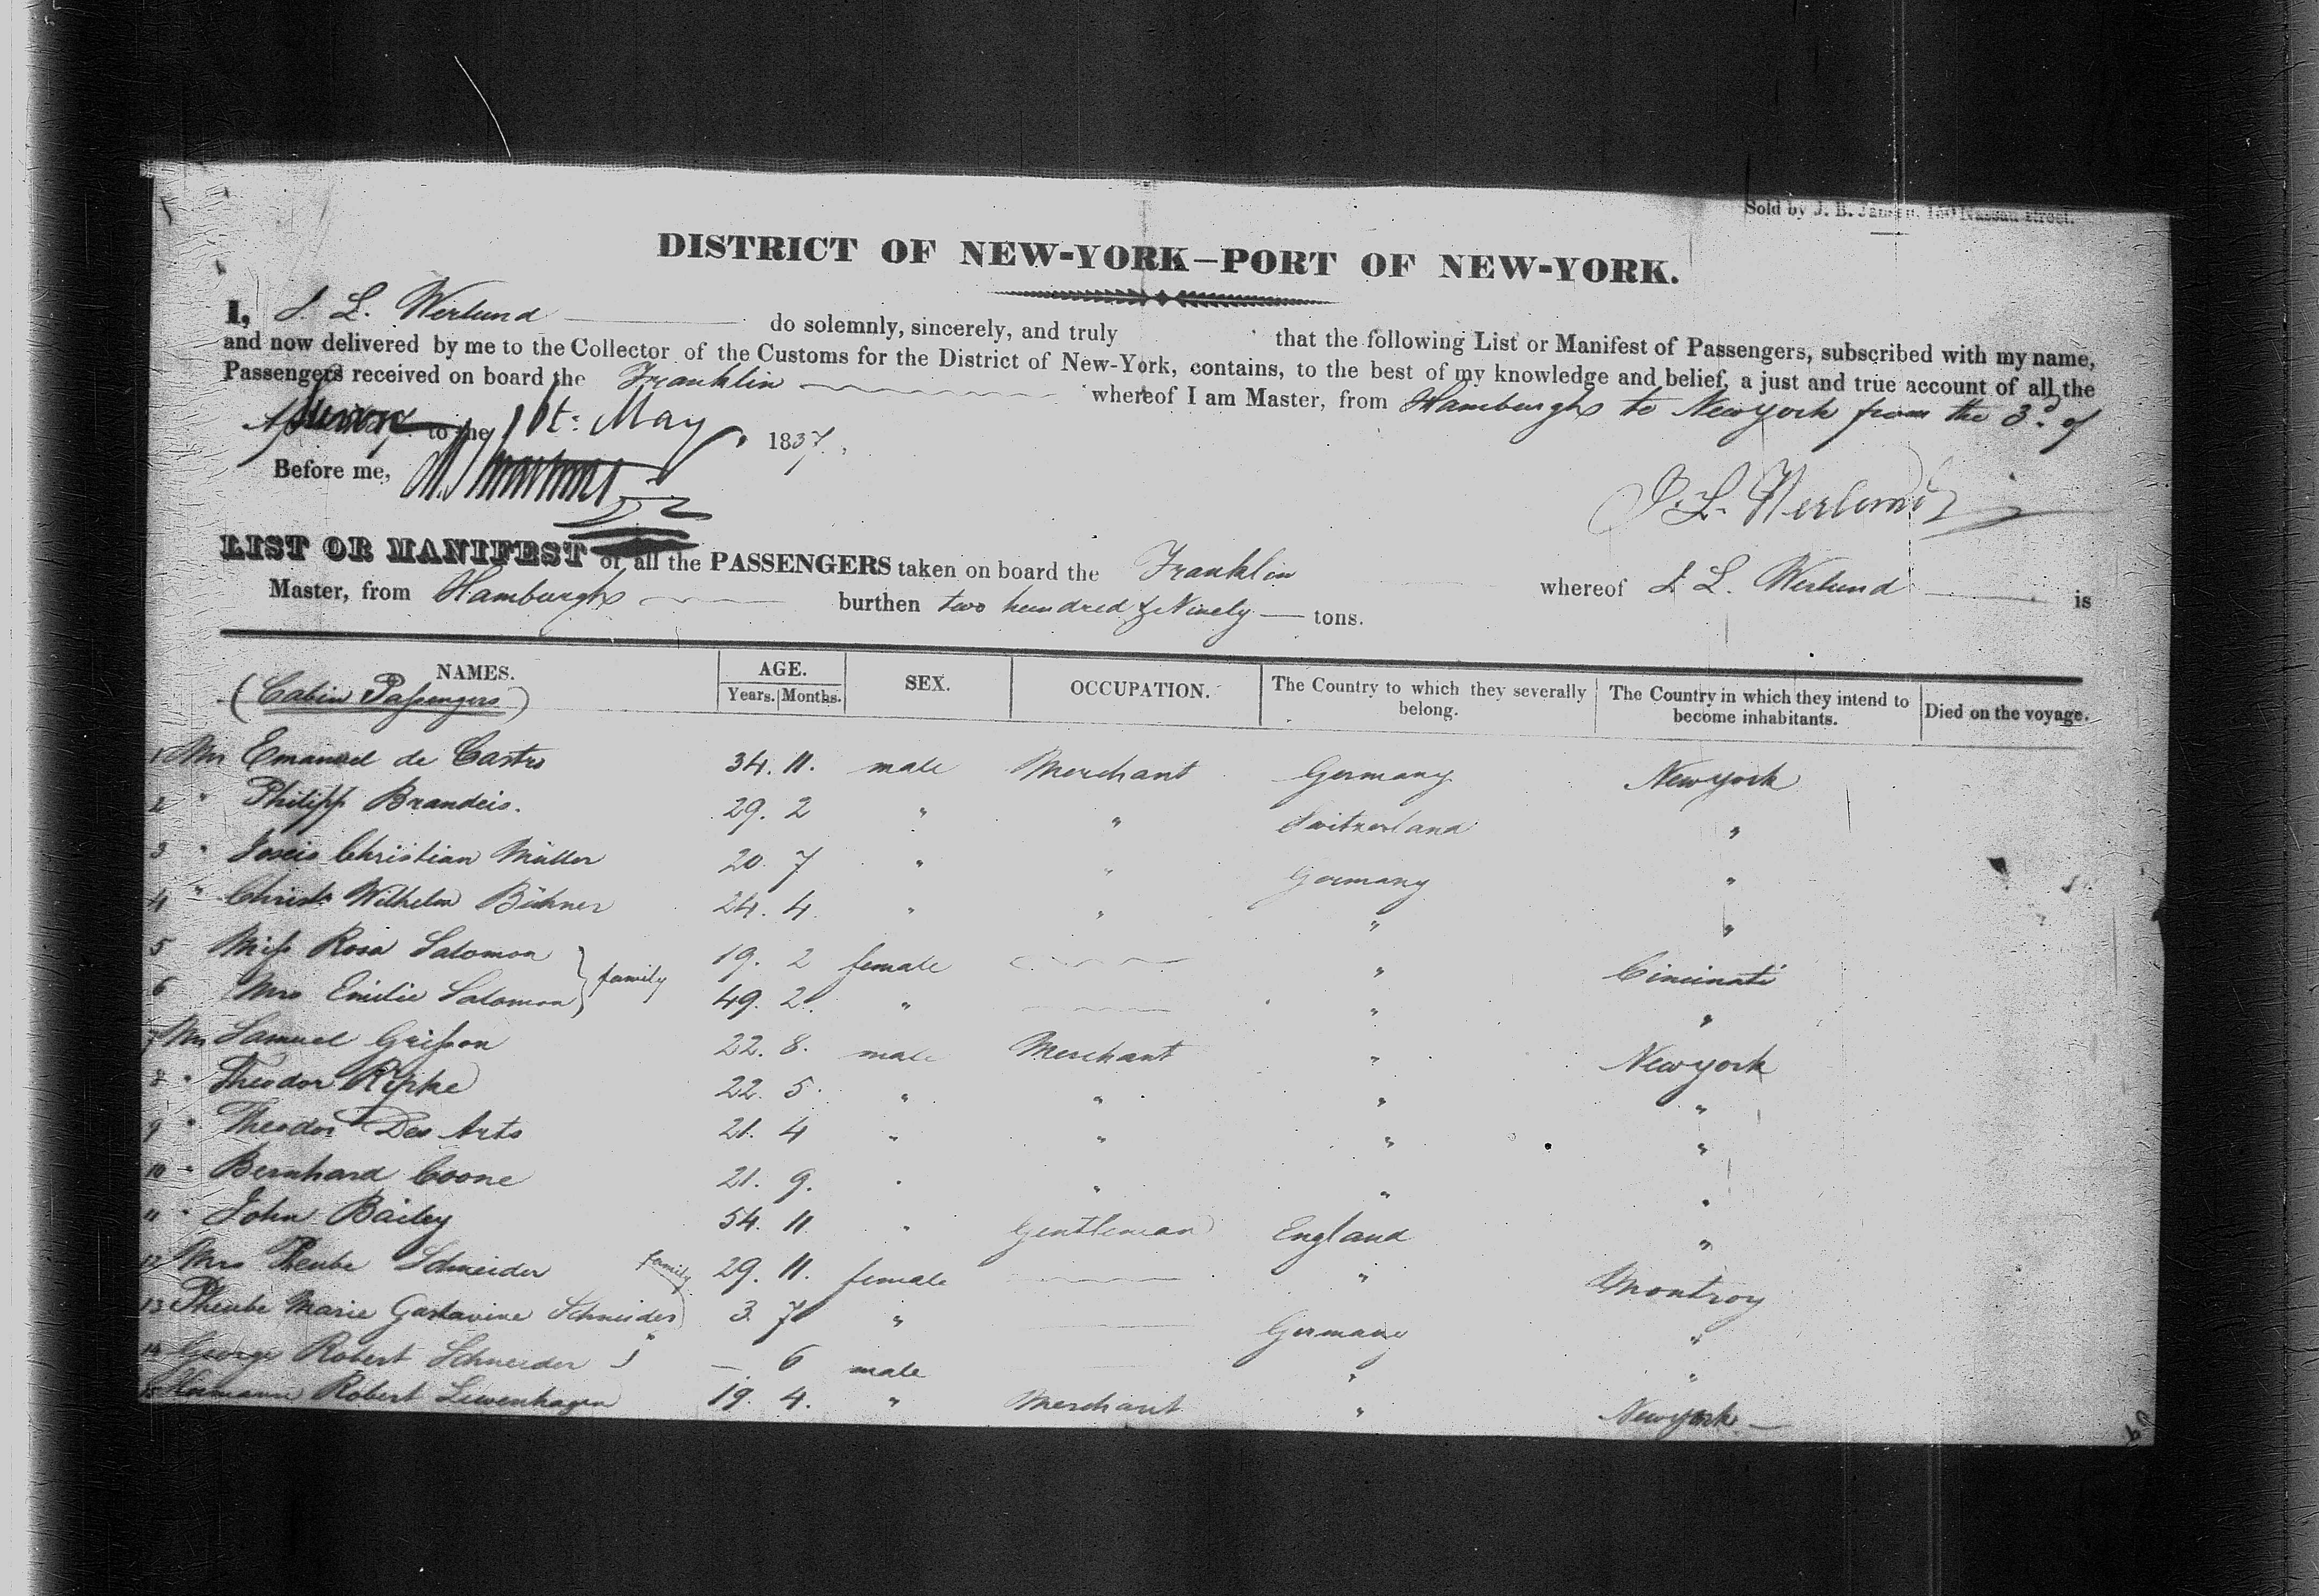 Sold by J. B. Jansen, 150 Nassau street.
DISTRICT OF NEW-YORK—PORT OF NEW-YORK.
I, J. L. Werlund do solemnly, sincerely, and truly that the following List or Manifest of Passengers, subscribed with my name,
and now delivered by me to the Collector of the Customs for the District of New-York, contains, to the best of my knowledge and belief, a just and true account of all the
Passengers received on board the Franklin whereof I am Master, from Hamburgh to Newyork from the 3d. of
to the May 1837.
Before me,
J. L. Werlund
LIST OR MANIFEST of all the PASSENGERS taken on board the Franklin whereof J. L. Werlund is
Master, from Hamburgh burthen two hundred & Ninety — tons.
NAMES. AGE. SEX. OCCUPATION. The Country to which they severally belong. The Country in which they intend to become inhabitants. Died on the voyage.
(Cabin Passengers) Years. Months.
1 Mr Emanuel de Castro 34. 11. male Merchant Germany Newyork
2 " Philipp Brandeis. 29. 2 " " Switzerland "
3 " Christian Müller 20. 7 " " Germany "
4 " Christ: Wilhelm Bühner 24. 4 " " " "
5 Miss Rosa Salomon 19. 2 female " Cincinati
family
6 Mrs Emilie Salomon 49. 2. " " "
7 Mr Samuel Grisson 22. 8. male Merchant " Newyork
8 " Theodor Ripke 22. 5 " " " "
9 " Theodor Des Arts 21. 4 " " " "
10 " Bernhard Coone 21. 9. " " " "
11 " John Bailey 54. 11 " Gentleman England "
12 Mrs Pheube Schneider family 29. 11. female " Montroy
13 Pheube Marie Gustavine Schneider 3. 7 " Germany "
14 George Robert Schneider — 6 male " "
15 Hermann Robert Lewenhagen 19. 4. " Merchant " Newyork —